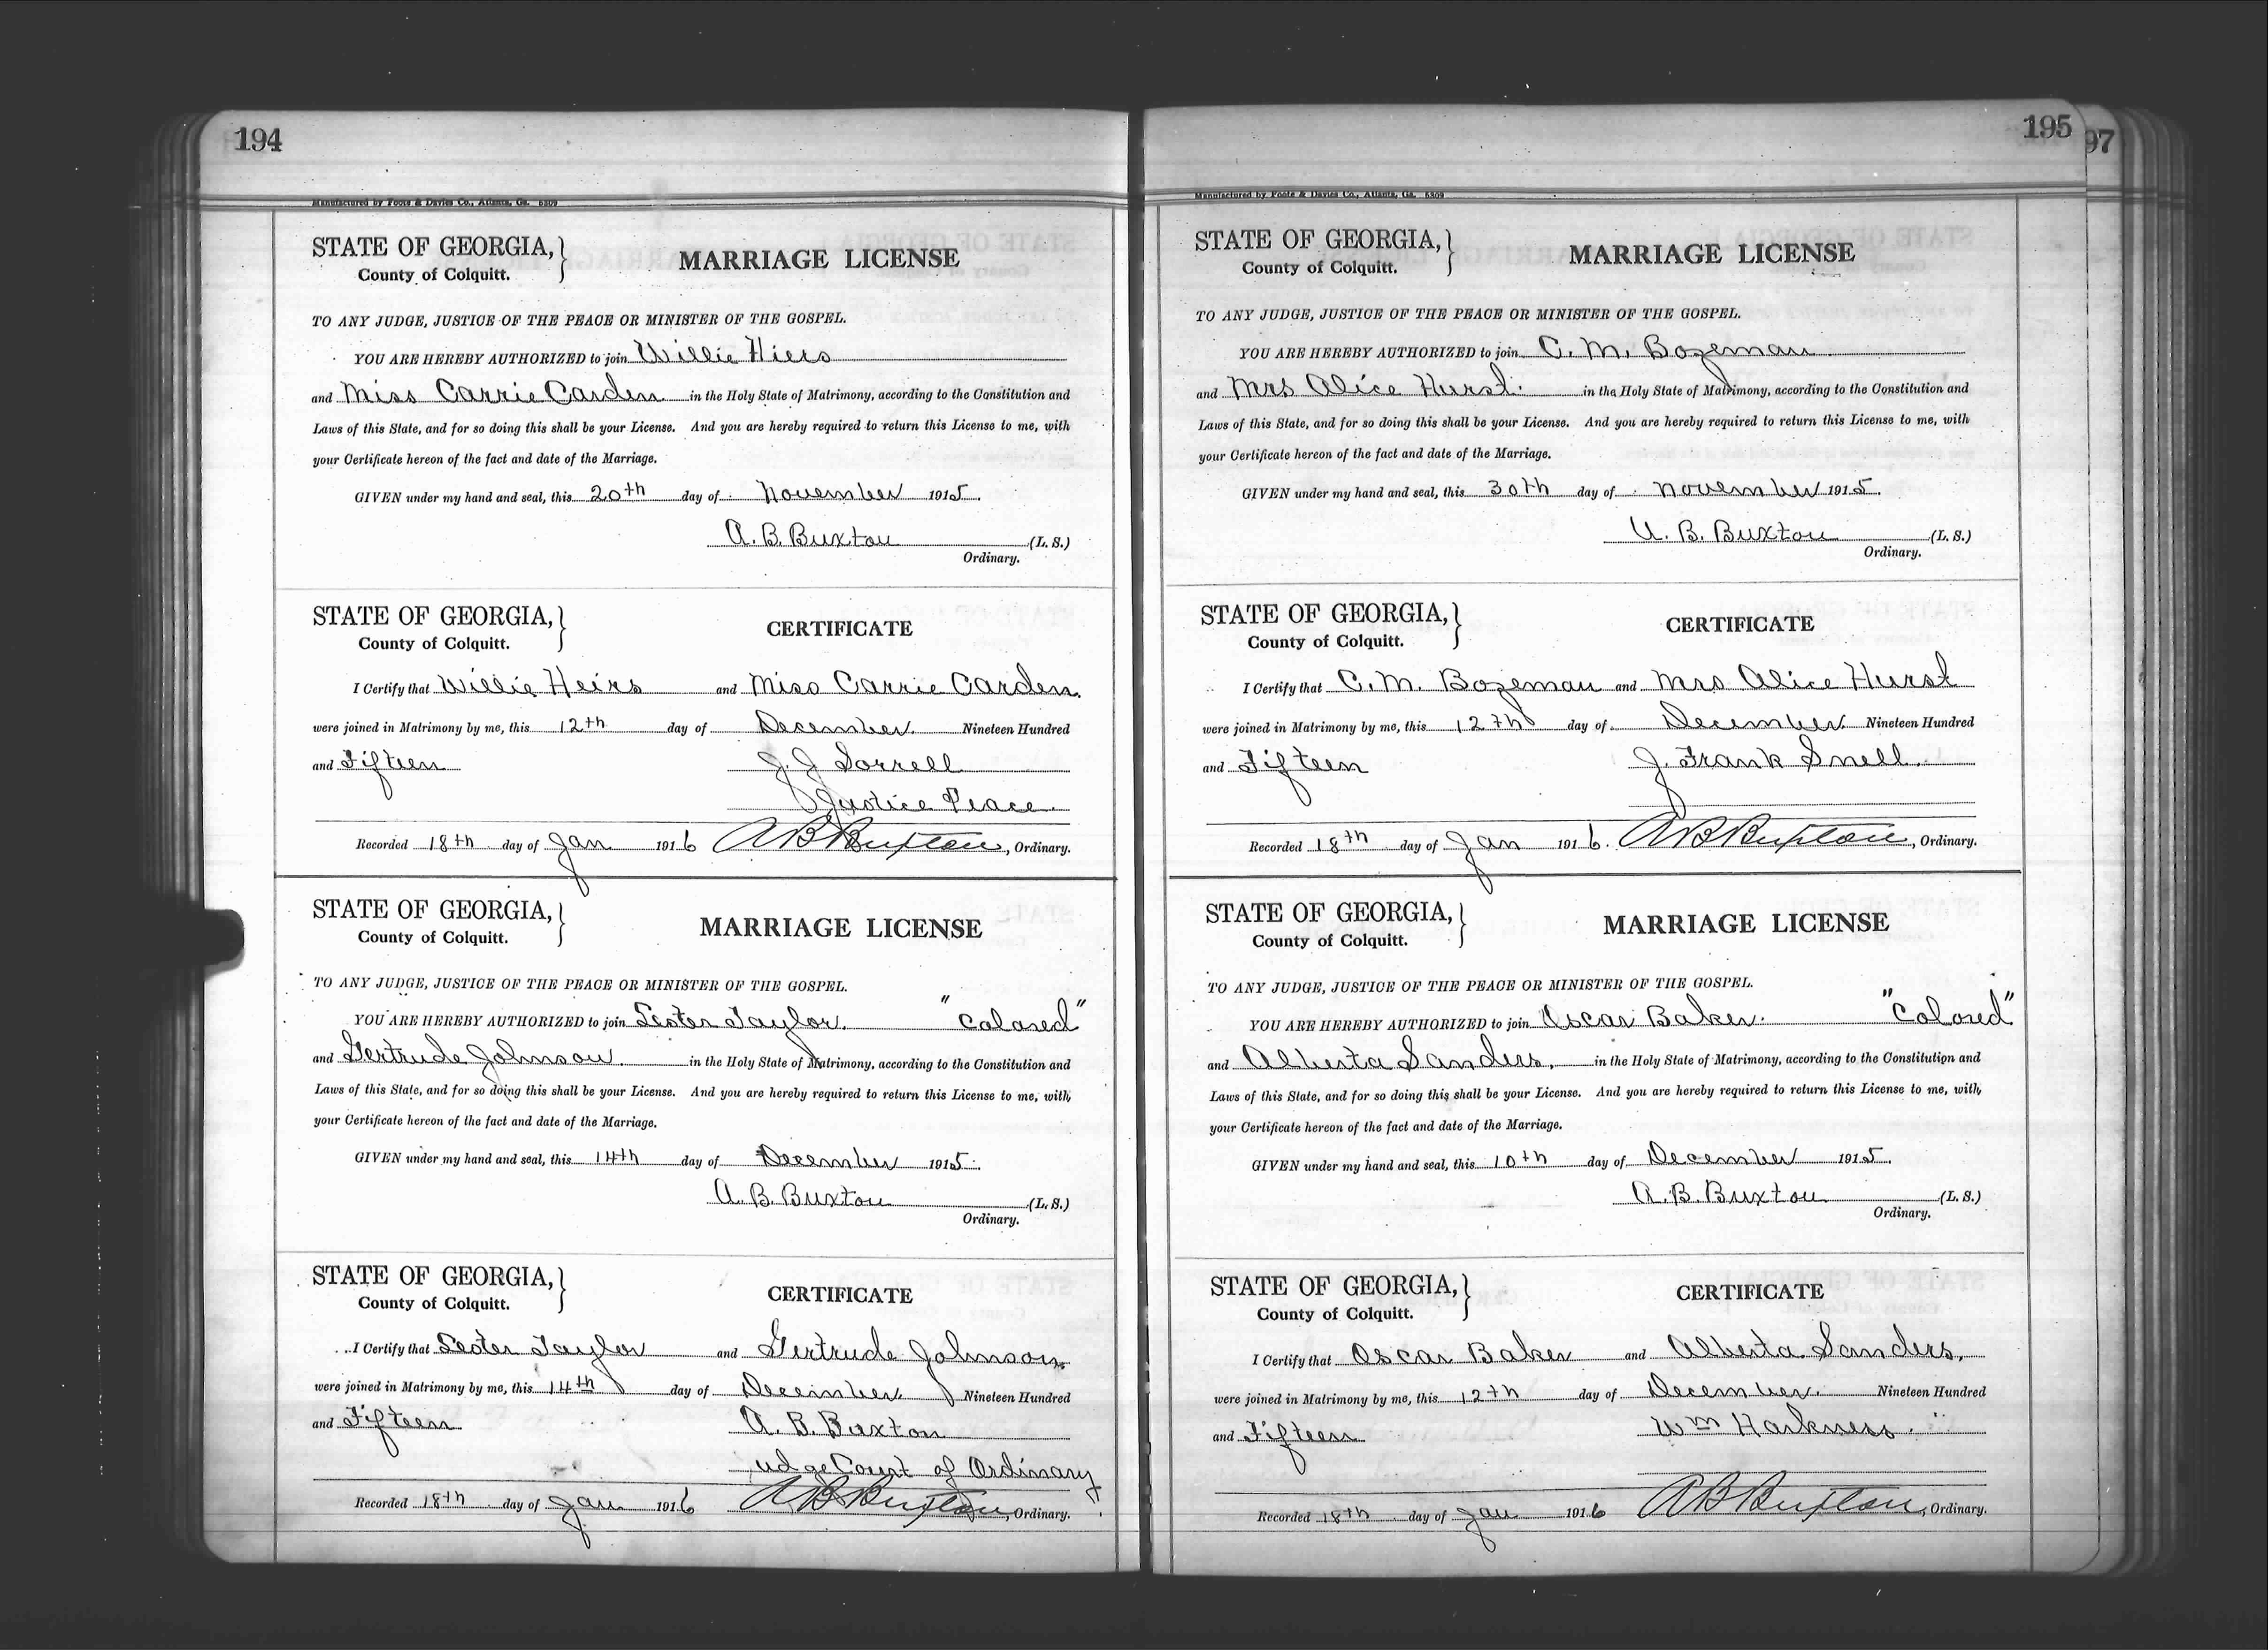 194
Manufactured by Foote & Davies Co., Atlanta, Ga. 5309
STATE OF GEORGIA,
County of Colquitt.
MARRIAGE LICENSE
TO ANY JUDGE, JUSTICE OF THE PEACE OR MINISTER OF THE GOSPEL.
YOU ARE HEREBY AUTHORIZED to join Willie Hiers
and Miss Carrie Carden in the Holy State of Matrimony, according to the Constitution and
Laws of this State, and for so doing this shall be your License. And you are hereby required to return this License to me, with
your Certificate hereon of the fact and date of the Marriage.
GIVEN under my hand and seal, this 20th day of November 1915.
A. B. Buxton (L. S.)
Ordinary.
STATE OF GEORGIA,
County of Colquitt.
CERTIFICATE
I Certify that Willie Heirs and Miss Carrie Carden.
were joined in Matrimony by me, this 12th day of December. Nineteen Hundred
and Fifteen J. J. Sorrell
Justice Peace.
Recorded 18th day of Jan 1916 A B Buxton, Ordinary.
STATE OF GEORGIA,
County of Colquitt.
MARRIAGE LICENSE
TO ANY JUDGE, JUSTICE OF THE PEACE OR MINISTER OF THE GOSPEL.
YOU ARE HEREBY AUTHORIZED to join Lester Taylor. "Colored"
and Gertrude Johnson. in the Holy State of Matrimony, according to the Constitution and
Laws of this State, and for so doing this shall be your License. And you are hereby required to return this License to me, with
your Certificate hereon of the fact and date of the Marriage.
GIVEN under my hand and seal, this 14th day of December 1915.
A. B. Buxton (L. S.)
Ordinary.
STATE OF GEORGIA,
County of Colquitt.
CERTIFICATE
I Certify that Lester Taylor and Gertrude Johnson
were joined in Matrimony by me, this 14th day of December Nineteen Hundred
and Fifteen A. B. Buxton
udge Court of Ordinary
Recorded 18th day of Jan 1916 A B Buxton, Ordinary.
195
97
Manufactured by Foote & Davies Co., Atlanta, Ga. 5309
STATE OF GEORGIA,
County of Colquitt.
MARRIAGE LICENSE
TO ANY JUDGE, JUSTICE OF THE PEACE OR MINISTER OF THE GOSPEL.
YOU ARE HEREBY AUTHORIZED to join C. M. Bozeman
and Mrs Alice Hurst. in the Holy State of Matrimony, according to the Constitution and
Laws of this State, and for so doing this shall be your License. And you are hereby required to return this License to me, with
your Certificate hereon of the fact and date of the Marriage.
GIVEN under my hand and seal, this 30th day of November 1915.
A. B. Buxton (L. S.)
Ordinary.
STATE OF GEORGIA,
County of Colquitt.
CERTIFICATE
I Certify that C. M. Bozeman and Mrs Alice Hurst
were joined in Matrimony by me, this 12th day of December. Nineteen Hundred
and Fifteen J. Frank Snell.
Recorded 18th day of Jan 1916. A B Buxton, Ordinary.
STATE OF GEORGIA,
County of Colquitt.
MARRIAGE LICENSE
TO ANY JUDGE, JUSTICE OF THE PEACE OR MINISTER OF THE GOSPEL.
YOU ARE HEREBY AUTHORIZED to join Oscar Baker. "Colored"
and Alberta Sanders. in the Holy State of Matrimony, according to the Constitution and
Laws of this State, and for so doing this shall be your License. And you are hereby required to return this License to me, with
your Certificate hereon of the fact and date of the Marriage.
GIVEN under my hand and seal, this 10th day of December 1915.
A. B. Buxton (L. S.)
Ordinary.
STATE OF GEORGIA,
County of Colquitt.
CERTIFICATE
I Certify that Oscar Baker and Alberta Sanders.
were joined in Matrimony by me, this 12th day of December. Nineteen Hundred
and Fifteen Wm Harkness.
Recorded 18th day of Jan 1916 A B Buxton, Ordinary.